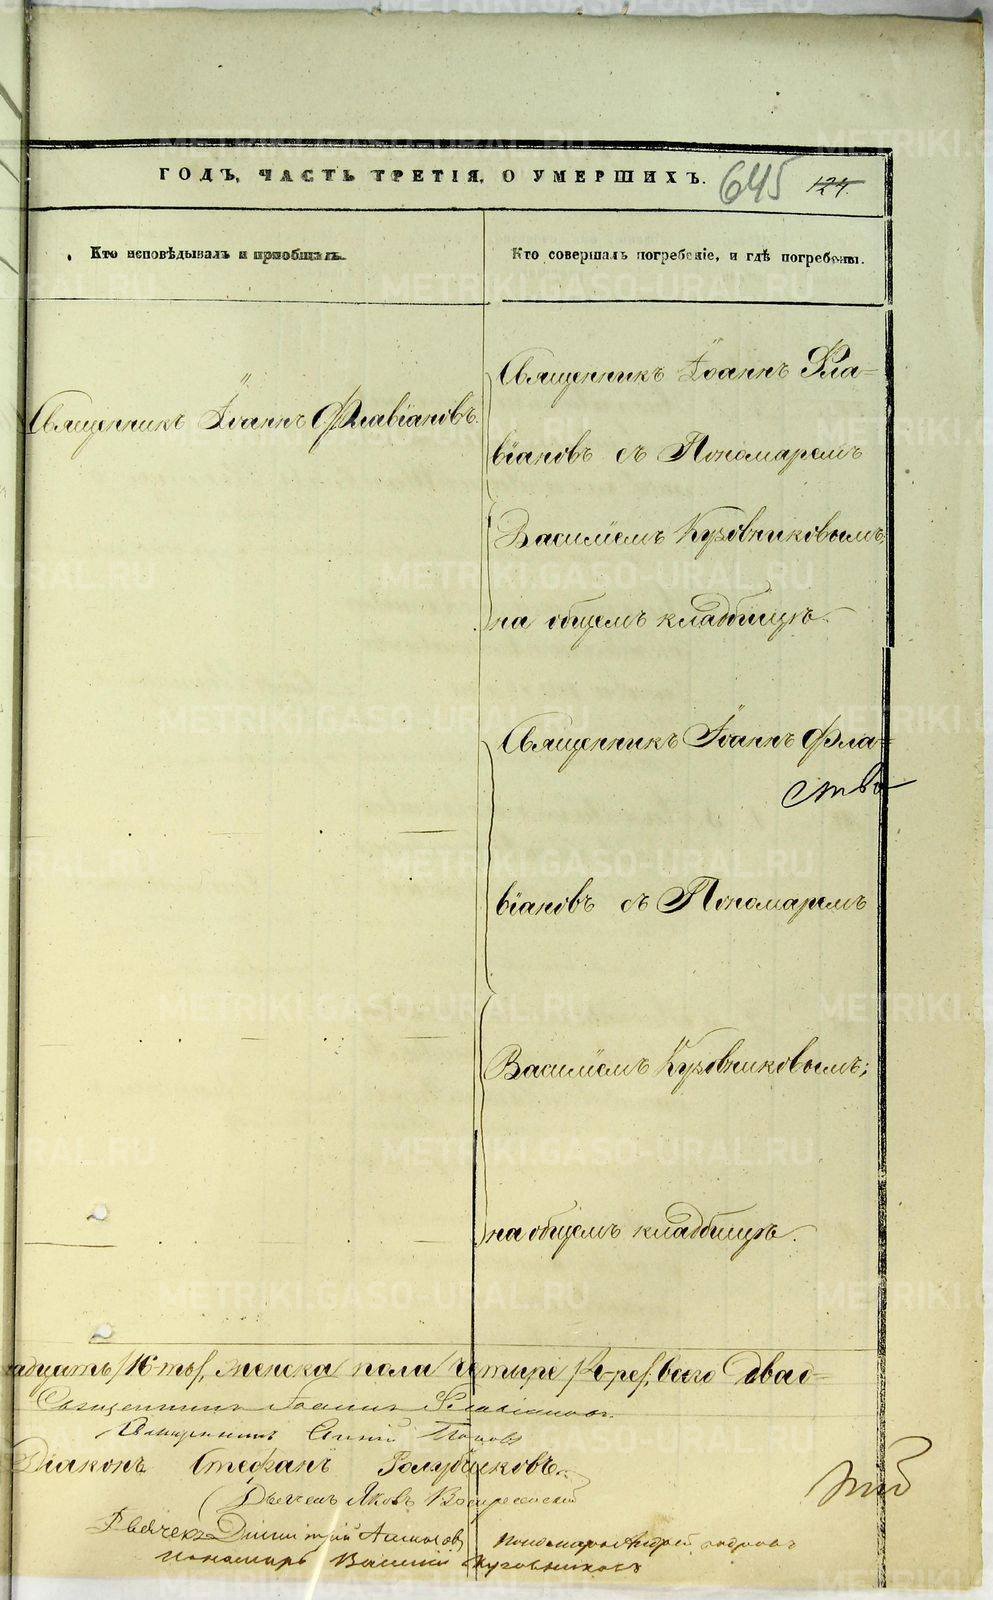 ГОДЪ, ЧАСТЬ ТРЕТІЯ, О УМЕРШИХЪ. 645 124.
Кто исповѣдывалъ и пріобщалъ.
Кто совершалъ погребеніе, и гдѣ погребены.
Священникъ Іоаннъ Флавіановъ.
Священникъ Іоаннъ Фла=
віановъ съ Пономаремъ
Василіемъ Кузовниковымъ;
на общемъ кладбищѣ.
Священникъ Іоаннъ Фла=
ство
віановъ съ Пономаремъ
Василіемъ Кузовниковымъ;
на общемъ кладбищѣ.
надцать /16-ть/, женска пола четыре /4-ре/, всего двад=
Священникъ Іоаннъ Флавіановъ.
Священникъ Поповъ
Діаконъ Стефанъ Голубчиковъ.
Дьячекъ Яковъ Воскресенскій
Дьячекъ Димитрій
Пономарь Андрей
Пономарь Василій Кузовниковъ
METRIKI.GASO-URAL.RU